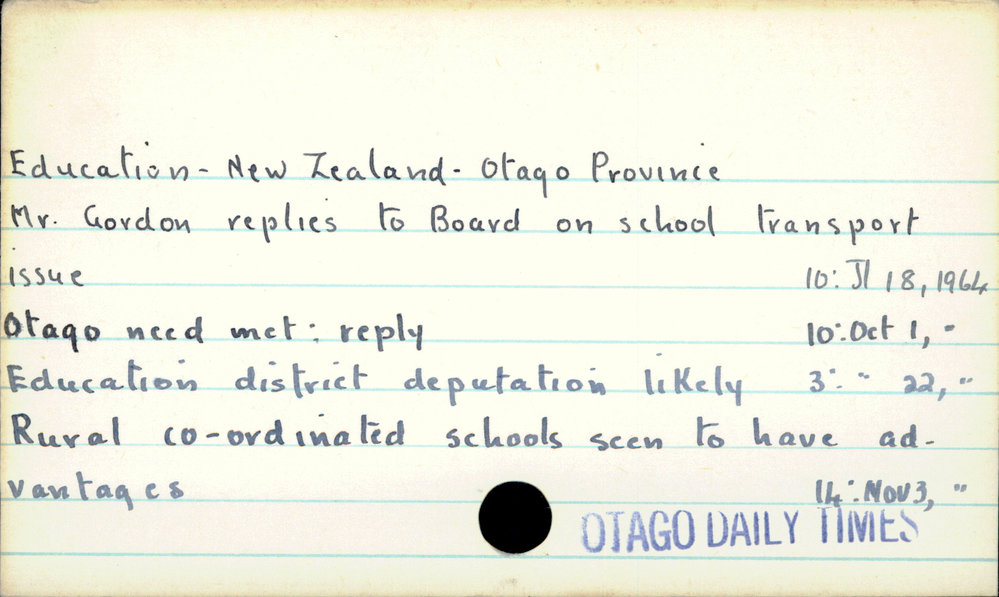 Education - New Zealand - Otago Province
Mr. Gordon replies to Board on school transport
issue 10: Jl 18, 1964
Otago need met: reply 10: Oct 1, "
Education district deputation likely 3: " 22, "
Rural co-ordinated schools seen to have ad-
vantages 14: Nov 3, "
OTAGO DAILY TIMES